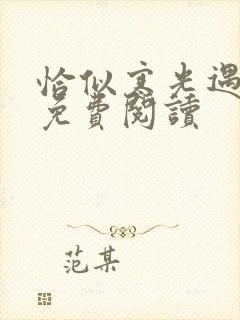 恰似寒光遇
免費閱讀
范某